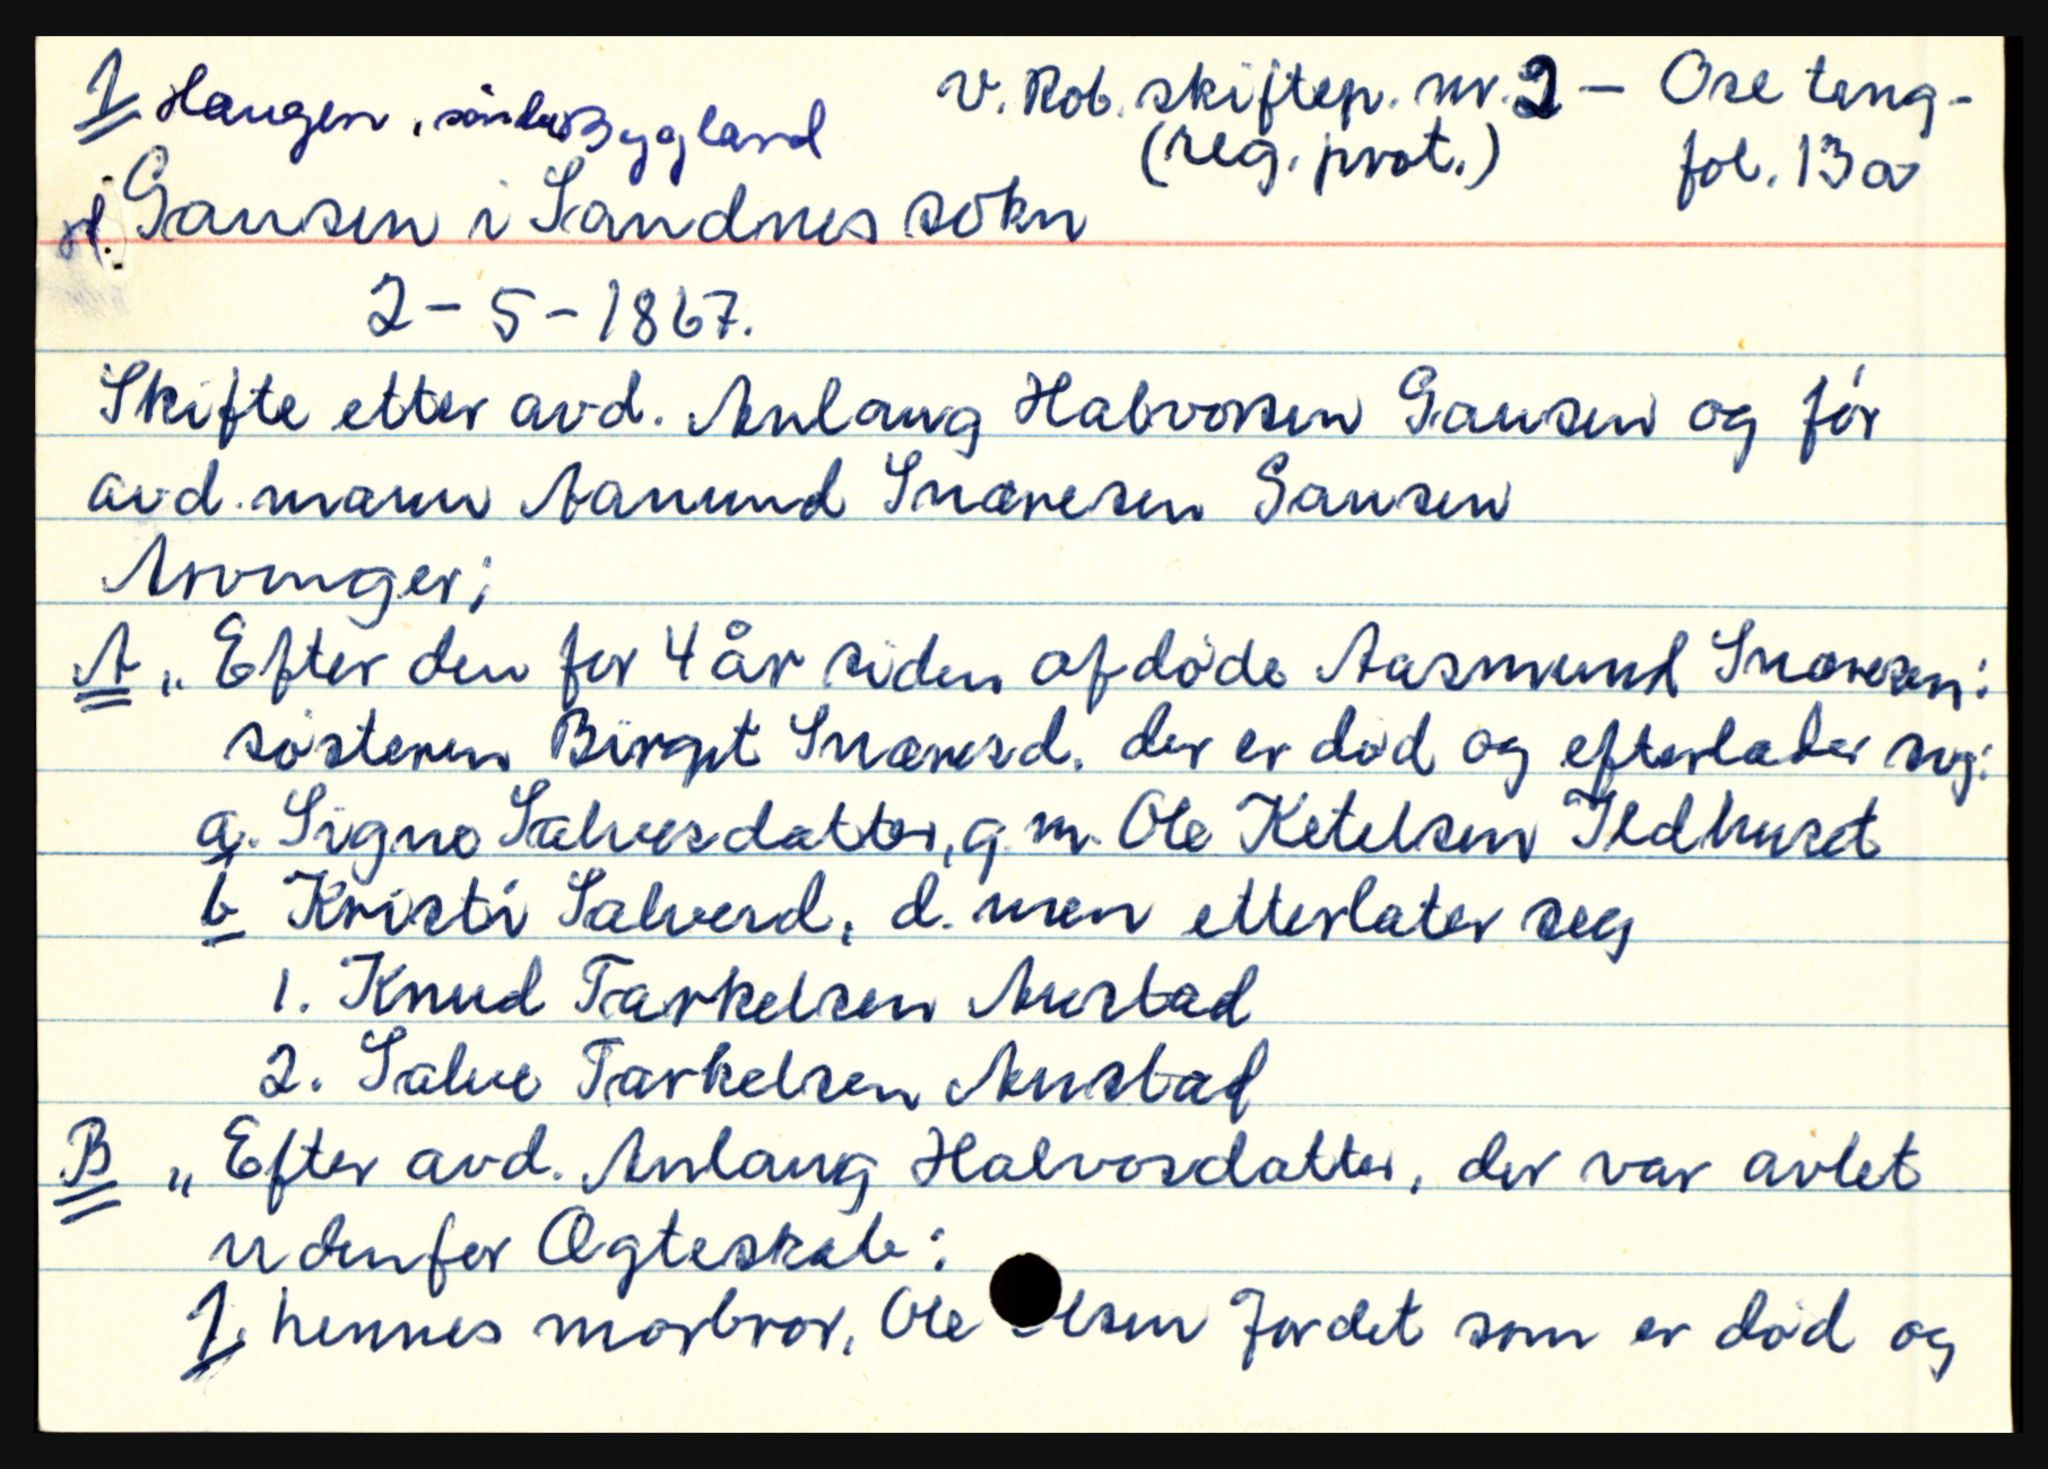 1 Haugen, söndre Bygland V. Rob. skiftep. nr. 2 – Ose teng-
(reg. prot.) fol. 13a
Gausen i Sandnes sokn
2-5-1867.
Skifte etter avd. Anlaug Halvorsen Gausen og för
avd. mann Aanund Snaresen Gausen
Arvinger;
A „ Efter den for 4 år siden afdöde Aasmund Snaresen:
søsteren Birgit Snaresd. der er död og efterlader sig:
a. Signe Salvesdatter, g. m. Ole Ketelsen Ildhuset
b Kristi Salvesd, d. men etterlater seg
1. Knud Tarkelsen Austad
2. Salve Tarkelsen Austad
B „ Efter avd. Anlaug Halvorsdatter, der var avlet
udenfor Ægteskab:
1. hennes morbror, Ole lsen Jordet som er död og